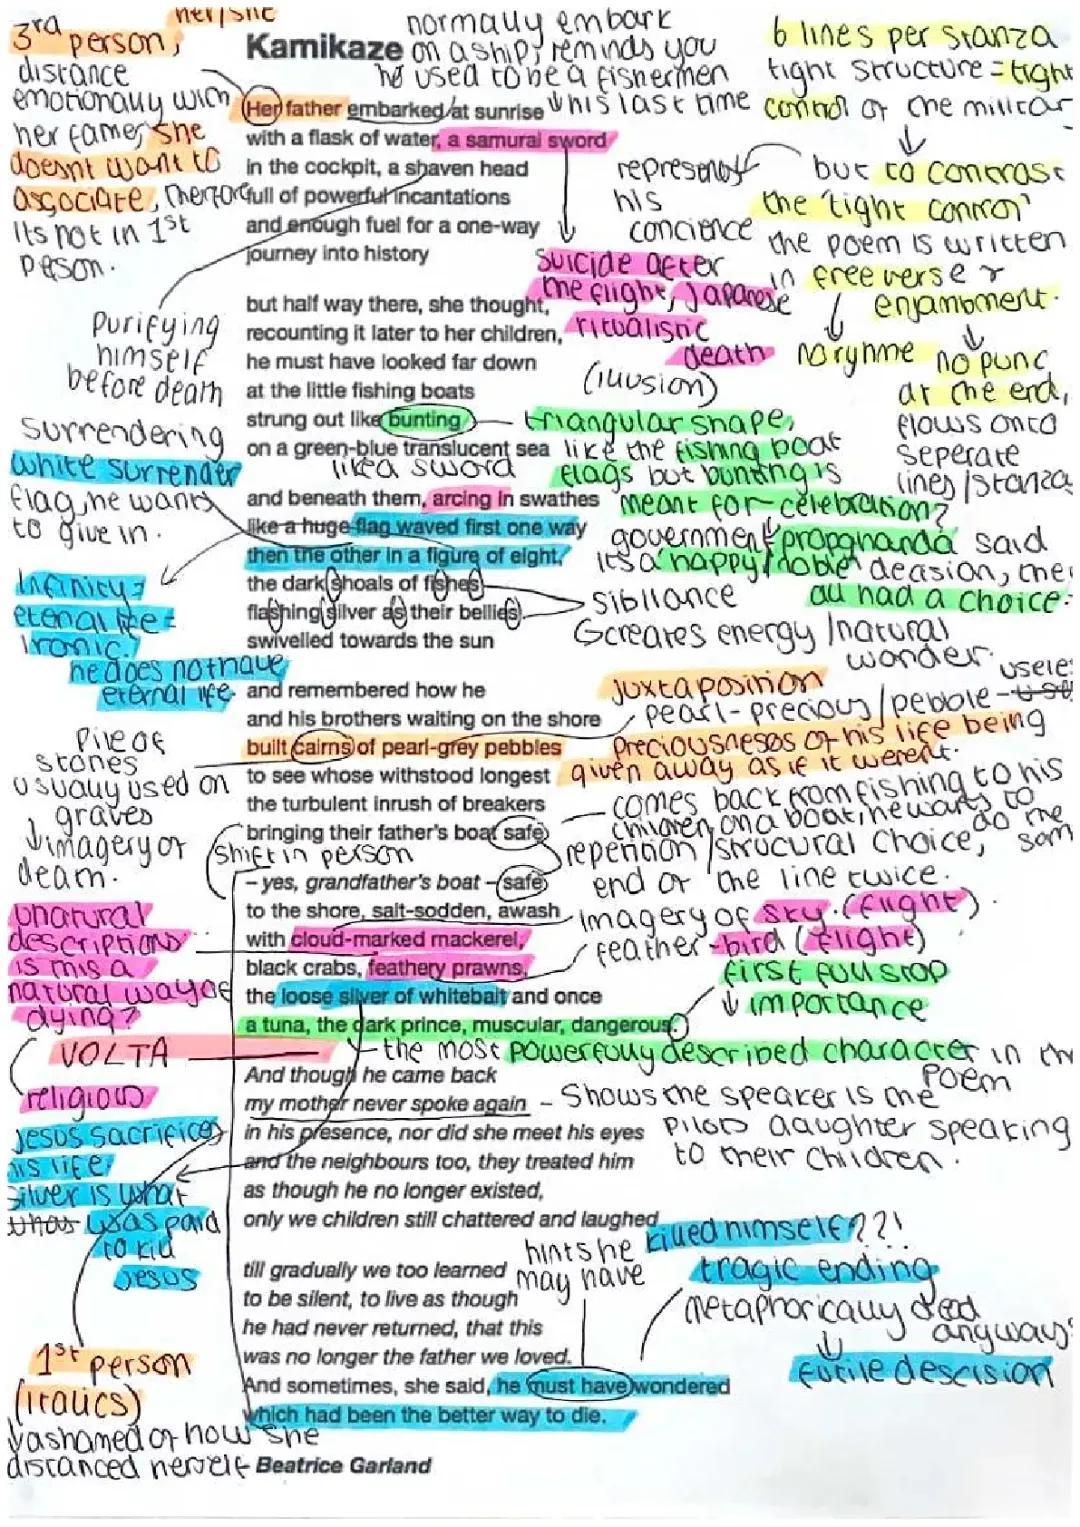 her/she
3rd person,
distance
emotionally with
her father, she
doesnt want to
associate, therefore
its not in 1st
person.
Kamikaze
normally embark
on a ship, reminds you
he used to be a fishermen
↓ his last time
6 lines per stanza
tight structure = tight
control of the militar
↓
but to contrast
the 'tight control'
the poem is written
in free verse &
enjambment.
↓ ↓
no ryhme
no punc
at the end,
flows onto
seperate
lines/stanzas
Her father embarked at sunrise
with a flask of water, a samurai sword
in the cockpit, a shaven head
full of powerful incantations
and enough fuel for a one-way
journey into history
represents
his
concience
suicide after
the flight, Japanese
ritualistic
death
(illusion)
Purifying
himself
before death
but half way there, she thought,
recounting it later to her children,
he must have looked far down
at the little fishing boats
strung out like bunting
on a green-blue translucent sea
triangular shape,
like the fishing boat
flags but bunting is
meant for celebration?
government propnanda said
its a 'happy/noble' decision, they
all had a choice.
surrendering
white surrender
flag, he wants
to give in.
like a sword
and beneath them, arcing in swathes
like a huge flag waved first one way
then the other in a figure of eight,
the dark shoals of fishes
flashing silver as their bellies
swivelled towards the sun
sibilance
creates energy/natural
wonder
Infinity =
eternal life =
Ironic.
he does not have
eternal life.
and remembered how he
and his brothers waiting on the shore
built cairns of pearl-grey pebbles
to see whose withstood longest
the turbulent inrush of breakers
bringing their father's boat safe
juxtaposition
pearl-precious/pebble-
useles
preciousnesos of his life being
given away as if it werent.
Pile of
stones
usually used on
graves
↓ imagery of
death.
comes back from fishing to his
children, on a boat, he wants to
do the
sam
repetition/strucural choice,
end of the line twice.
shift in person
– yes, grandfather's boat – safe
to the shore, salt-sodden, awash
with cloud-marked mackerel,
black crabs, feathery prawns,
the loose silver of whitebait and once
a tuna, the dark prince, muscular, dangerous.
imagery of sky. (flight)
feather-bird (flight)
first full stop
↓ importance
the most powerfully described character in the
poem
unatural
descriptions
is this a
natural way of
dying?
VOLTA
religious
Jesus sacrifices
his life
silver is what
was paid
to kill
Jesus
And though he came back
my mother never spoke again
in his presence, nor did she meet his eyes
and the neighbours too, they treated him
as though he no longer existed,
only we children still chattered and laughed
- Shows the speaker is the
pilots daughter speaking
to their children.
till gradually we too learned
to be silent, to live as though
he had never returned, that this
was no longer the father we loved.
And sometimes, she said, he must have wondered
which had been the better way to die.
hints he
may have
killed himself??!
tragic ending
metaphorically dead
anyways
↓
futile descision
1st person
(italics)
↓ ashamed of how she
distanced herself
Beatrice Garland